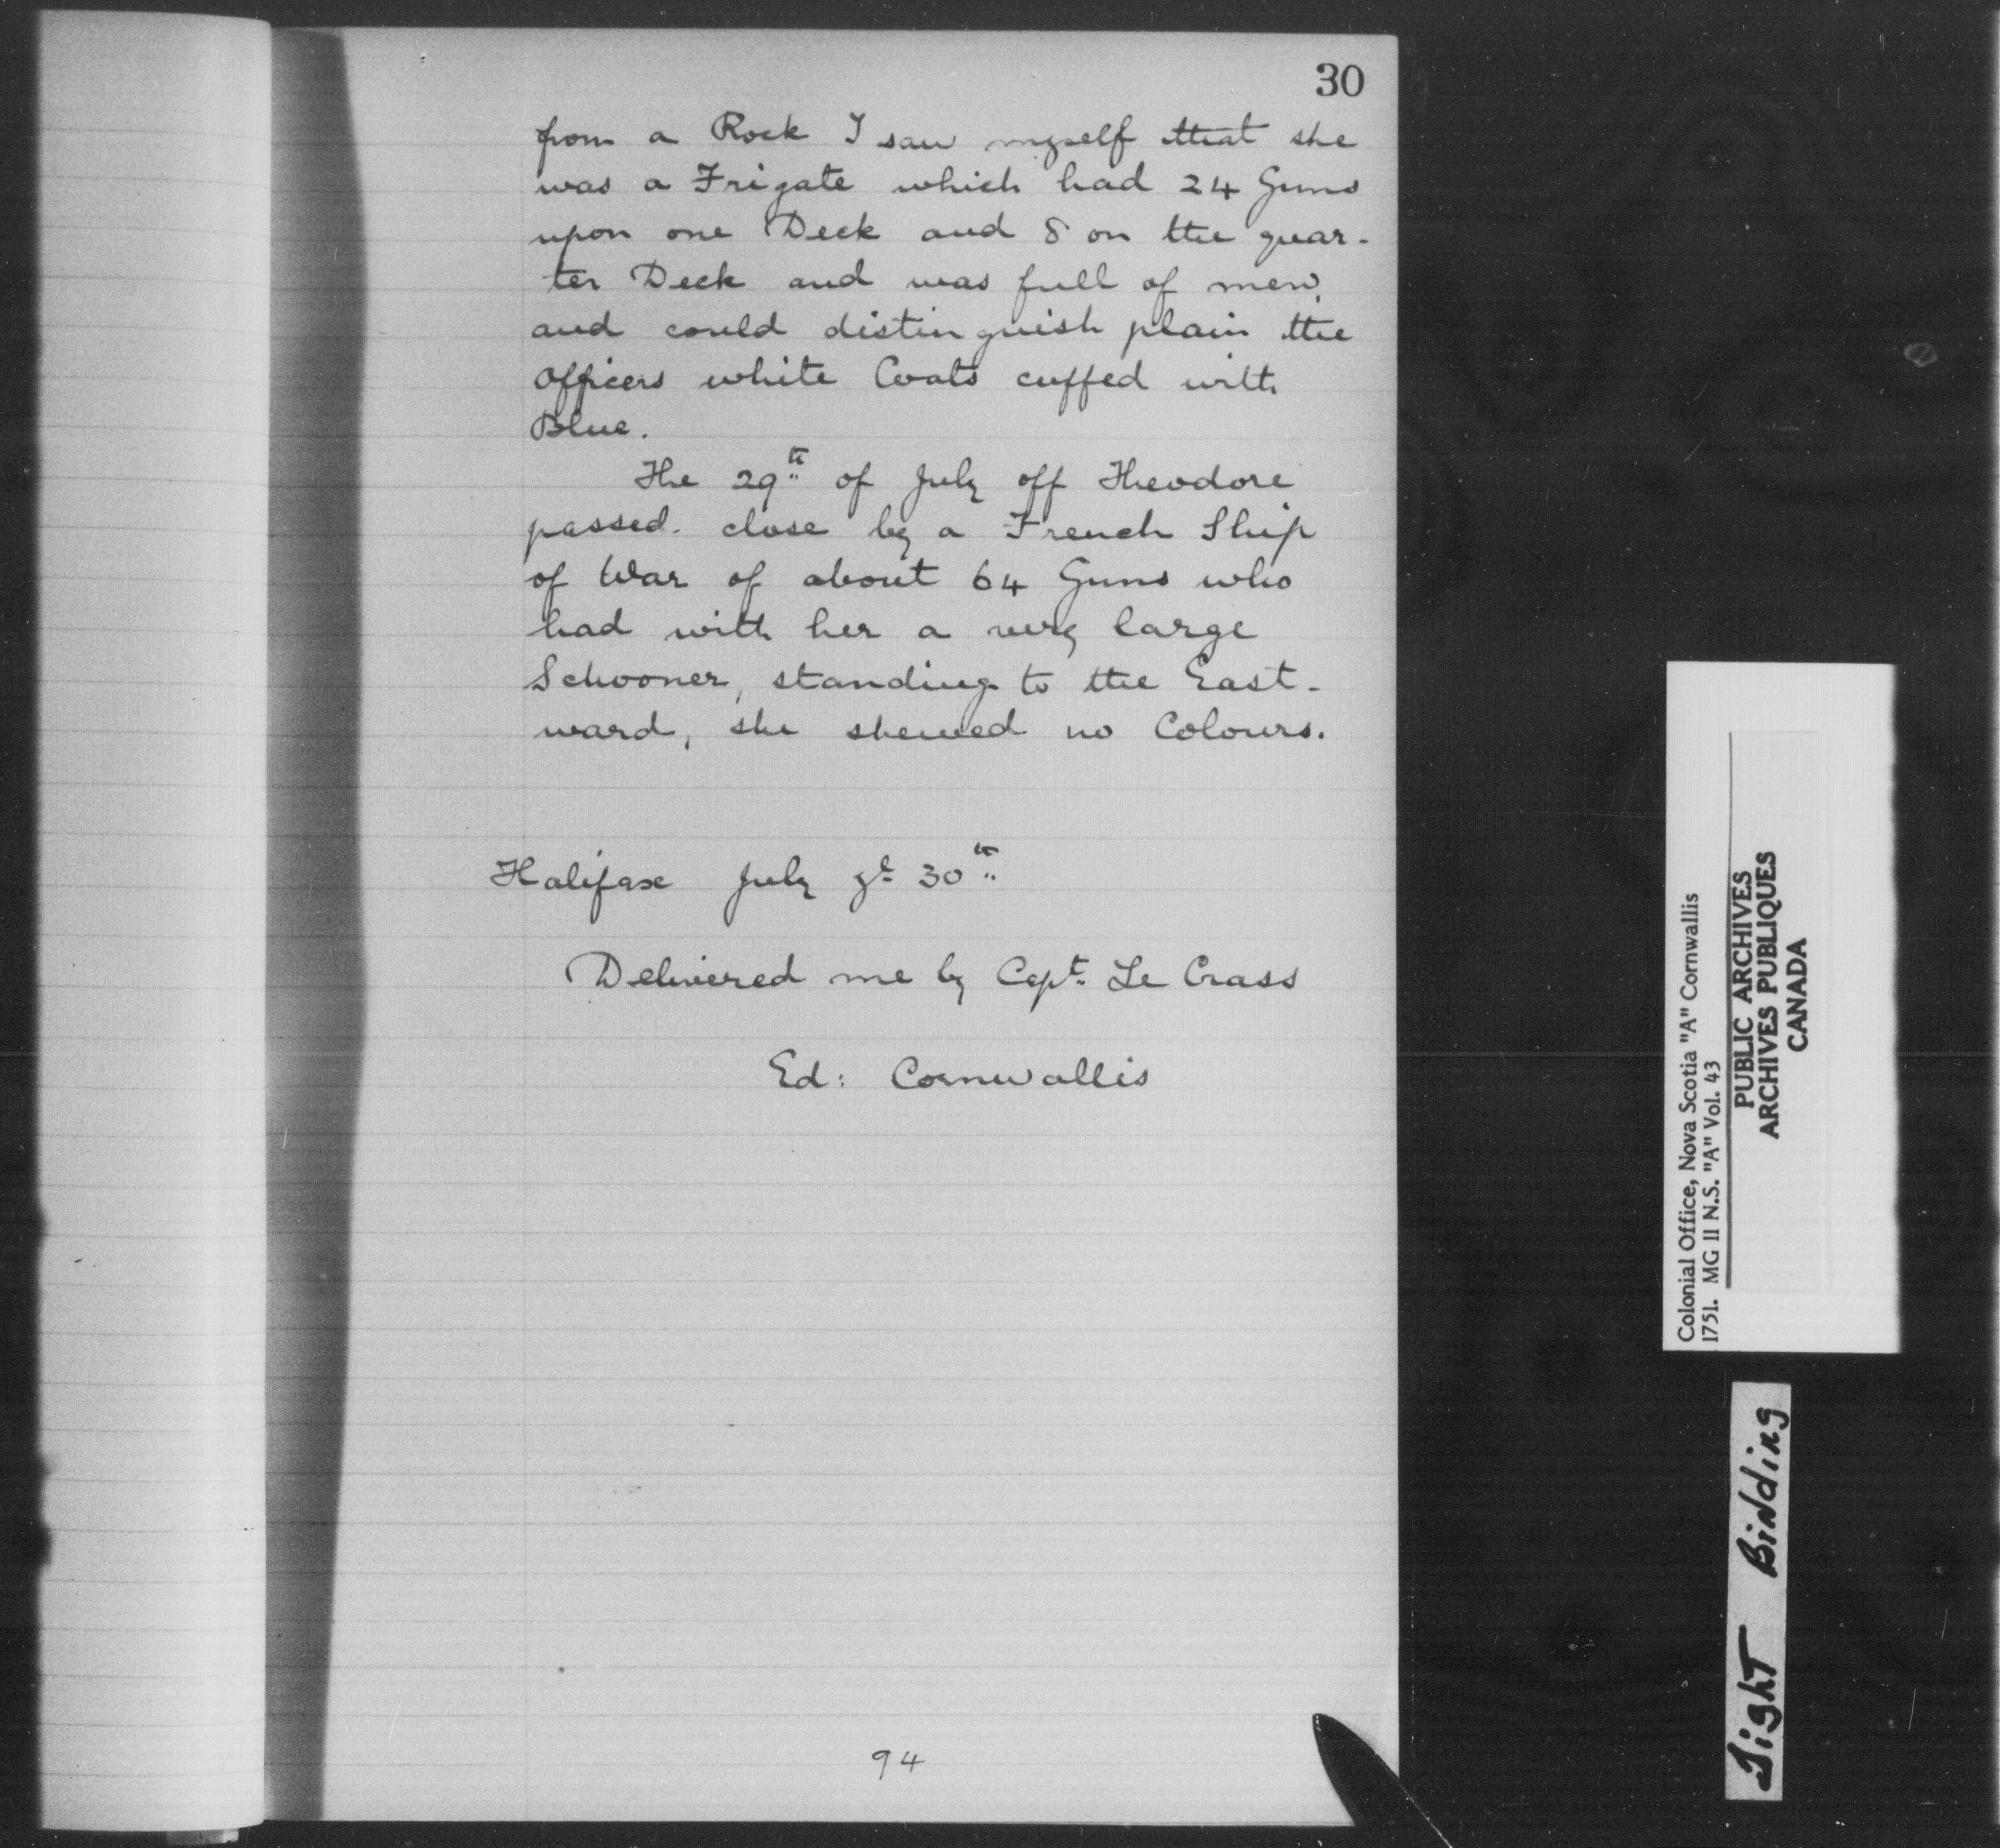 30
from a Rock I saw myself that she
was a Frigate which had 24 Guns
upon one Deck and 8 on the quar-
ter Deck and was full of men,
and could distinguish plain the
Officers white Coats cuffed with
Blue.
The 29th of July off Theodore
passed close by a French Ship
of War of about 64 Guns who
had with her a very large
Schooner, standing to the East-
ward, she shewed no Colours.
Halifax July ye 30th
Delivered me by Capt. Le Crass
Ed: Cornwallis
94
Colonial Office, Nova Scotia "A" Cornwallis
1751. MG 11 N.S. "A" Vol. 43
PUBLIC ARCHIVES
ARCHIVES PUBLIQUES
CANADA
Tight Binding